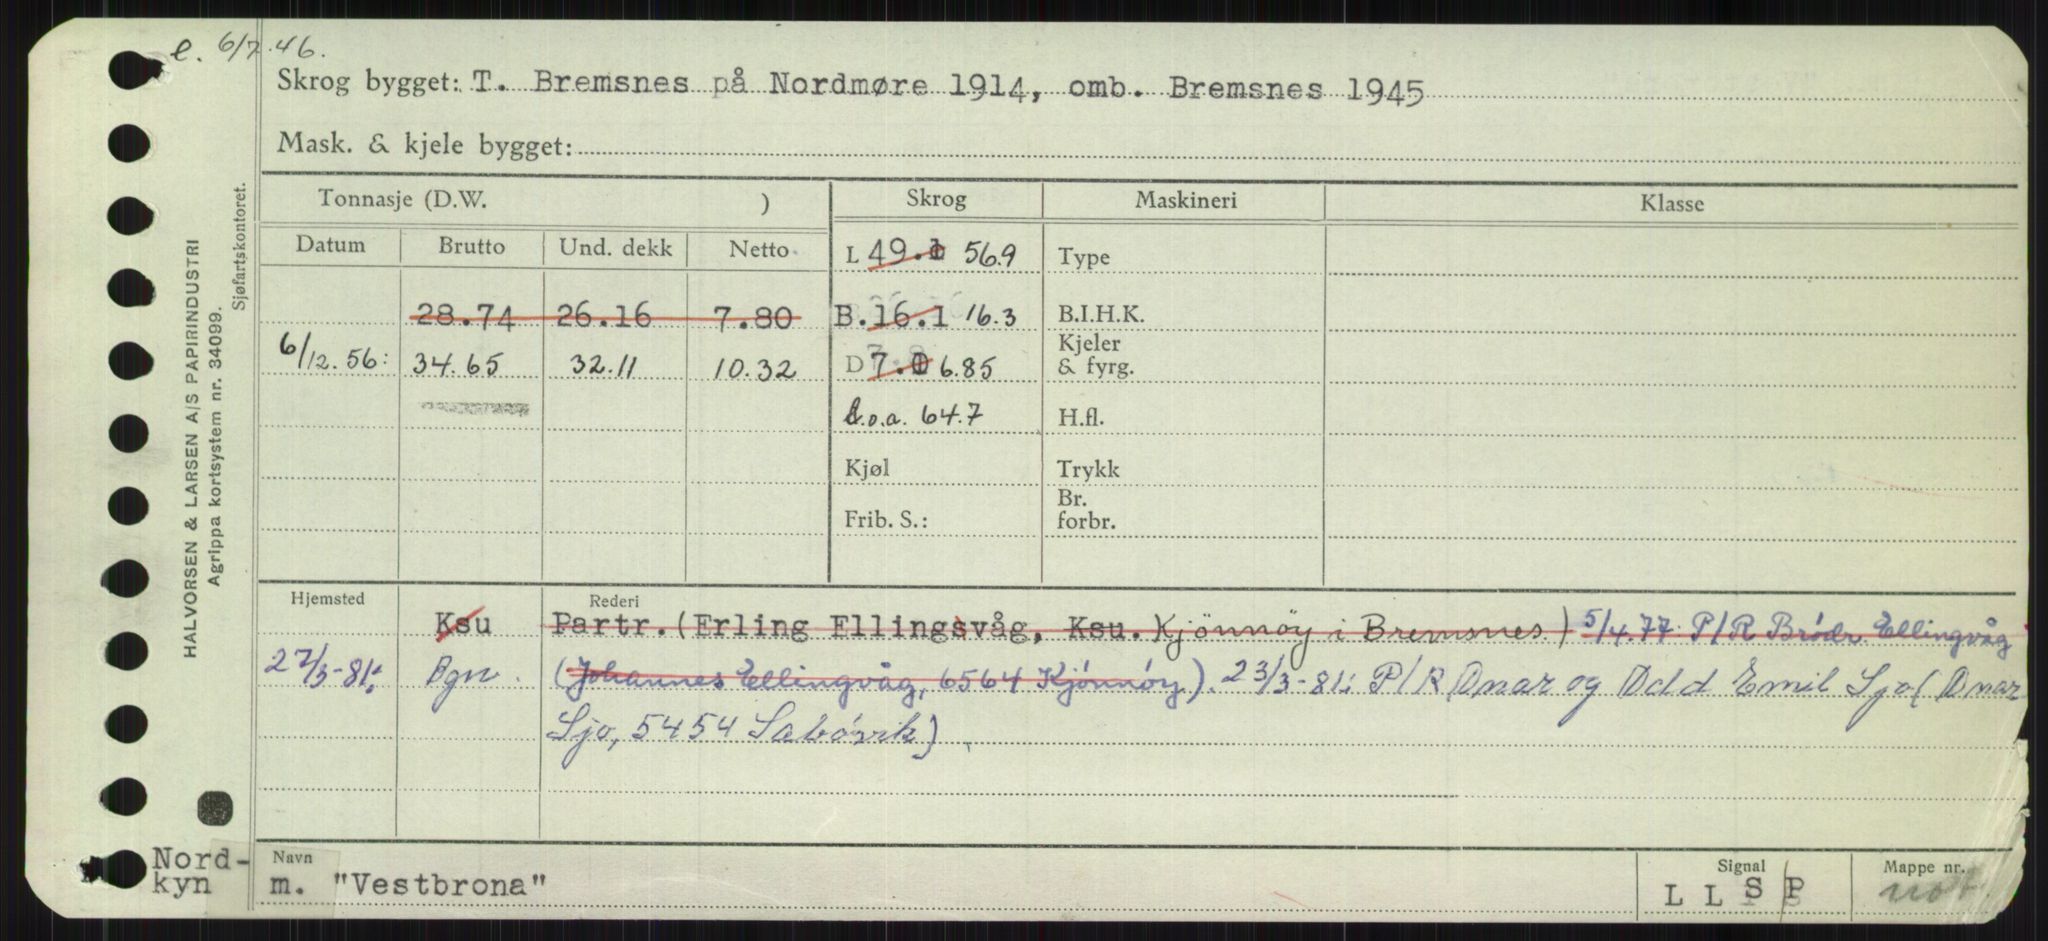 e. 6/7.46.
Skrog bygget: T. Bremsnes på Nordmøre 1914, omb. Bremsnes 1945
Mask. & kjele bygget:
Tonnasje (D.W. ) Skrog Maskineri Klasse
Datum Brutto Und. dekk Netto L 49.1 56.9 Type
28.74 26.16 7.80 B. 16.1 16.3 B.I.H.K.
6/12.56: 34.65 32.11 10.32 D 7.0 6.85 Kjeler & fyrg.
L.o.a. 64.7 H.fl.
Kjøl Trykk
Frib. S.: Br. forbr.
HALVORSEN & LARSEN A/S PAPIRINDUSTRI
Agrippa kortsystem nr. 34099.
Sjøfartskontoret.
Hjemsted Rederi
Ksu Partr. (Erling Ellingsvåg, Ksu. Kjönnöy i Bremsnes.) 5/4.77. P/R Brödr. Ellingvåg
27/3-81: Bgn. (Johannes Ellingvåg, 6564 Kjönnöy). 23/3-81: P/R Onar og Odd Emil Sjo (Onar
Sjo, 5454 Sæbövik)
Navn Signal Mappe nr.
Nord-
kyn
m. "Vestbrona" L L S P